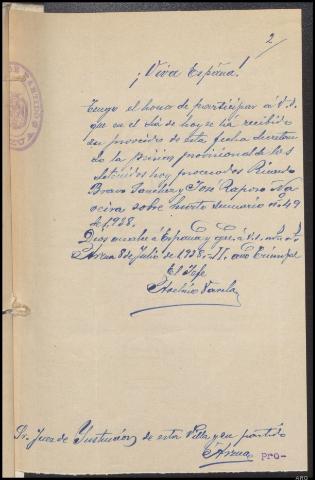 2
¡Viva España!
Tengo el honor de participar á V.S.
que en el dia de hoy se ha recibido
un proveido de esta fecha decretan
do la prision provisional de los
detenidos hoy procesados Ricardo
Bravo Sanchez y Jose Raposo No
veira sobre hurto sumario nº 49
de 1.938.
Dios salve á España y gue. á V.S. m.s a.s
Arzua 8 de Julio de 1.938.- II año Triunfal
El Jefe
Varela
Sr. Juez de Instrucción de esta Villa y su partido
Arzua
pro-